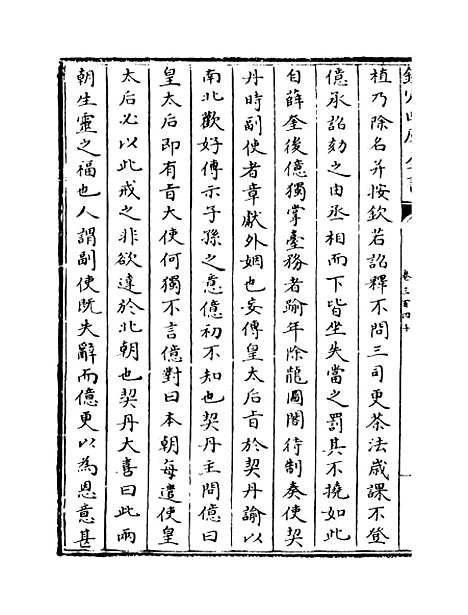 欽定四庫全書
卷三百四十
植乃除名并按欽若詔釋不問三司更茶法歲課不登
億承詔劾之由丞相而下皆坐失當之罰其不撓如此
自薛奎後億獨掌臺務者踰年除龍圖閣待制奏使契
丹時副使者章獻外姻也妄傳皇太后旨於契丹諭以
南北歡好傳示子孫之意億初不知也契丹主問億曰
皇太后即有旨大使何獨不言億對曰本朝每遣使皇
太后必以此戒之非欲達於北朝也契丹大喜曰此兩
朝生靈之福也人謂副使既失辭而億更以為恩意甚